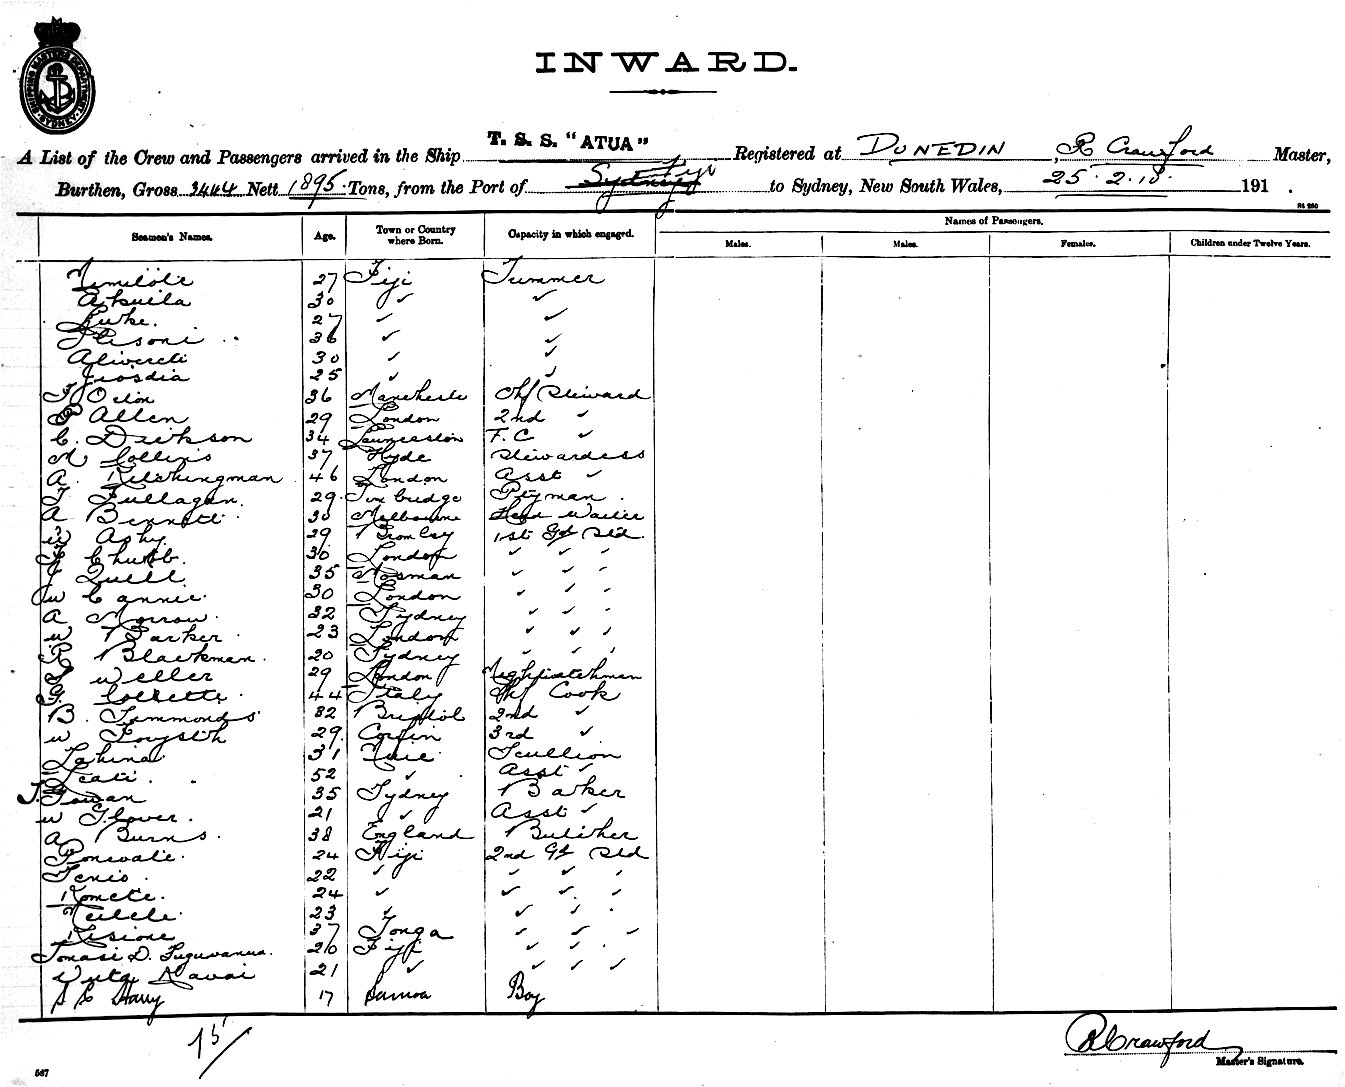 SHIPPING MASTERS DEPARTMENT SYDNEY
INWARD.
A List of the Crew and Passengers arrived in the Ship T. S. S. "ATUA" Registered at DUNEDIN, R Crawford Master,
Burthen, Gross 3444 Nett 1895 Tons, from the Port of Sydney Fiji to Sydney, New South Wales, 25.2.18. 191 .
Names of Passengers.
Seamen's Names. Age. Town or Country where Born. Capacity in which engaged. Males. Males. Females. Children under Twelve Years.
27 Fiji Trimmer
Akuila 30 ✓ ✓
Luke. 27 ✓ ✓
36 ✓ ✓
Alivereti 30 ✓ ✓
25 ✓ ✓
36 Chf Steward
P Allen 29 London 2nd ✓
C. Dickson 34 Launceston F. C ✓
M Collins 37 Hyde Stewardess
A. 46 London Asst ✓
T Fullagan. 29 Ptyman.
A Bennett 30 Melbourne Head Waiter
W Ashy. 29 Bromley 1st Gd Std.
Chubb. 30 London ✓ ✓ ✓
J Quell 35 Mosman ✓ ✓ ✓
W Cannie. 30 London ✓ ✓ ✓
A Morrow. 32 Sydney ✓ ✓ ✓
W Barker 23 London ✓ ✓ ✓
R Blackman. 20 Sydney ✓ ✓ ✓
S Weller 29 London Nightwatchman
G. Collette. 44 Italy Chf Cook
B. Simmonds 32 Bristol 2nd ✓
W Forsyth 29. 3rd ✓
Lahina 31 Niue Scullion
Leati. 52 ✓ Asst ✓
J. Gowan 35 Sydney Baker
W Glover. 21 ✓ Asst ✓
A Burns. 38 England Butcher
Ponivate. 24 Fiji 2nd Gd Std
Jenis. 22 ✓ ✓ ✓ ✓
Komete. 24 ✓ ✓ ✓ ✓
23 ✓ ✓ ✓
Kisione 37 Tonga ✓ ✓ ✓
Tomasi D. Tuguvanua. 20 Fiji ✓ ✓
Vuta Navai 21 ✓ ✓ ✓ ✓
Harry 17 Samoa Boy
75/
R Crawford
Master's Signature.
567